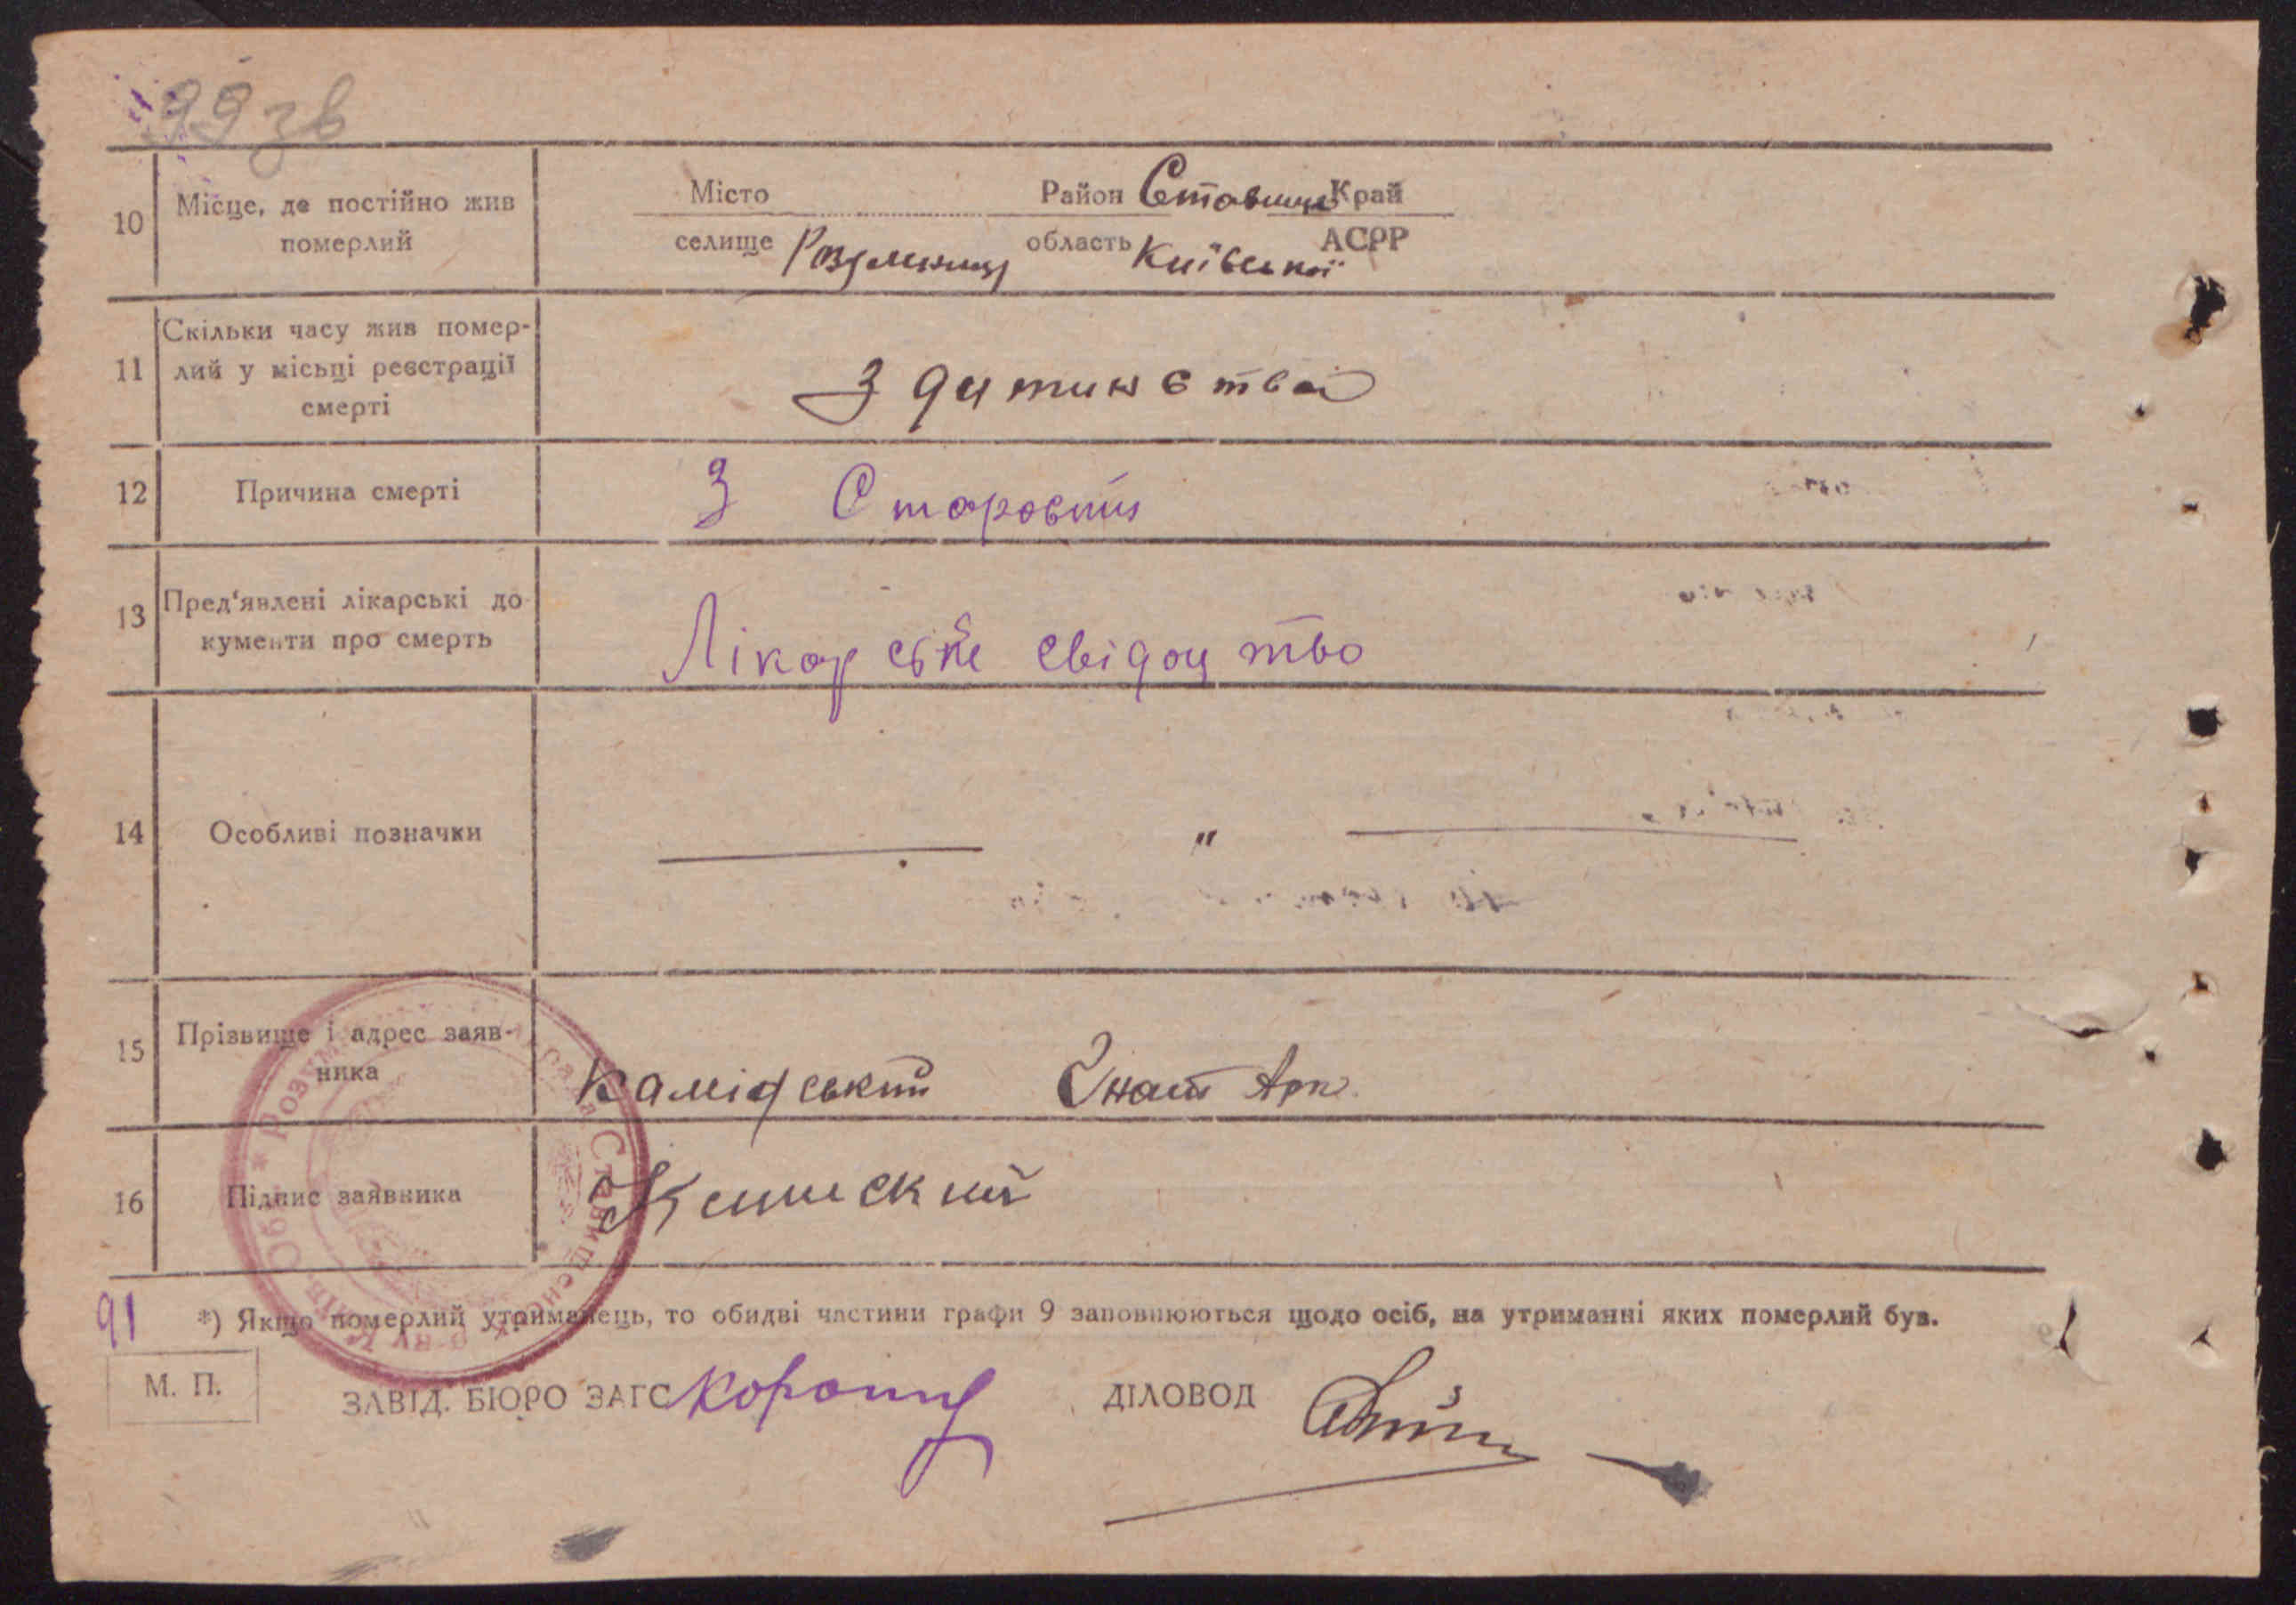 99 зв
10 Місце, де постійно жив померлий
Місто Район Ставище Край
селище область Київської АСРР
11 Скільки часу жив помер-
лий у місьці реєстрації
смерті
З дитинства
12 Причина смерті
З Старости
13 Пред'явлені лікарські до-
кументи про смерть
Лікарське свідоцтво
14 Особливі позначки
"
15 Прізвище і адрес заяв-
ника
Гнат
16 Підпис заявника
91
*) Якщо померлий утриманець, то обидві частини графи 9 заповнюються щодо осіб, на утриманні яких померлий був.
М. П.
ЗАВІД. БЮРО ЗАГС ДІЛОВОД